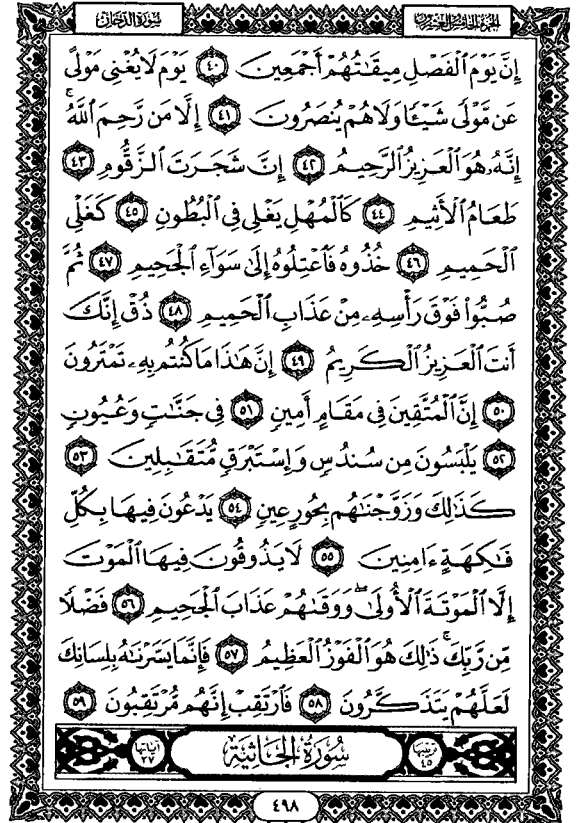 سورة الدخان
الجزء الخامس والعشرون
إِنَّ يَوْمَ ٱلْفَصْلِ مِيقَٰتُهُمْ أَجْمَعِينَ ٤٠ يَوْمَ لَا يُغْنِى مَوْلًى
عَن مَّوْلًى شَيْـًٔا وَلَا هُمْ يُنصَرُونَ ٤١ إِلَّا مَن رَّحِمَ ٱللَّهُ ۚ
إِنَّهُۥ هُوَ ٱلْعَزِيزُ ٱلرَّحِيمُ ٤٢ إِنَّ شَجَرَتَ ٱلزَّقُّومِ ٤٣
طَعَامُ ٱلْأَثِيمِ ٤٤ كَٱلْمُهْلِ يَغْلِى فِى ٱلْبُطُونِ ٤٥ كَغَلْىِ
ٱلْحَمِيمِ ٤٦ خُذُوهُ فَٱعْتِلُوهُ إِلَىٰ سَوَآءِ ٱلْجَحِيمِ ٤٧ ثُمَّ
صُبُّوا۟ فَوْقَ رَأْسِهِۦ مِنْ عَذَابِ ٱلْحَمِيمِ ٤٨ ذُقْ إِنَّكَ
أَنتَ ٱلْعَزِيزُ ٱلْكَرِيمُ ٤٩ إِنَّ هَٰذَا مَا كُنتُم بِهِۦ تَمْتَرُونَ
٥٠ إِنَّ ٱلْمُتَّقِينَ فِى مَقَامٍ أَمِينٍ ٥١ فِى جَنَّٰتٍ وَعُيُونٍ
٥٢ يَلْبَسُونَ مِن سُندُسٍ وَإِسْتَبْرَقٍ مُّتَقَٰبِلِينَ ٥٣
كَذَٰلِكَ وَزَوَّجْنَٰهُم بِحُورٍ عِينٍ ٥٤ يَدْعُونَ فِيهَا بِكُلِّ
فَٰكِهَةٍ ءَامِنِينَ ٥٥ لَا يَذُوقُونَ فِيهَا ٱلْمَوْتَ
إِلَّا ٱلْمَوْتَةَ ٱلْأُولَىٰ ۖ وَوَقَىٰهُمْ عَذَابَ ٱلْجَحِيمِ ٥٦ فَضْلًا
مِّن رَّبِّكَ ۚ ذَٰلِكَ هُوَ ٱلْفَوْزُ ٱلْعَظِيمُ ٥٧ فَإِنَّمَا يَسَّرْنَٰهُ بِلِسَانِكَ
لَعَلَّهُمْ يَتَذَكَّرُونَ ٥٨ فَٱرْتَقِبْ إِنَّهُم مُّرْتَقِبُونَ ٥٩
ترتيبها ٤٥ سُورَةُ الجَاثِيَةِ آياتها ٣٧
٤٩٨